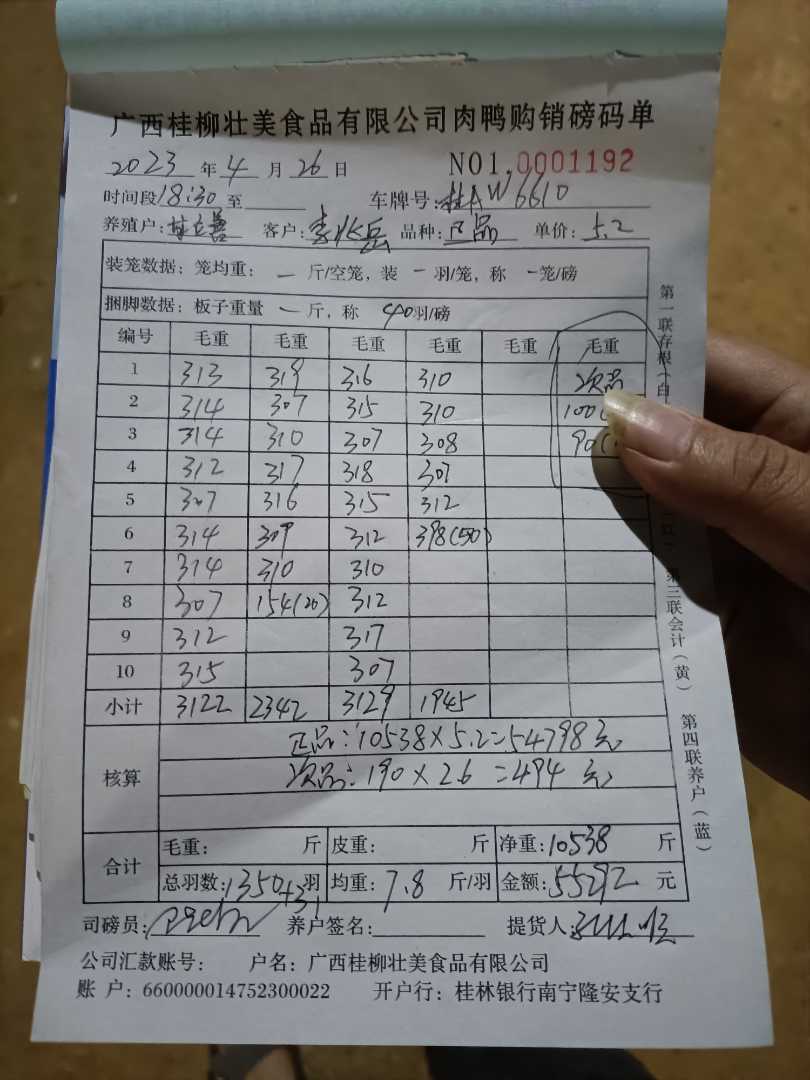 广西桂柳壮美食品有限公司肉鸭购销磅码单
2023 年 4 月 26 日 NO1.0001192
时间段18:30 至 车牌号:桂AW6610
养殖户: 客户: 李 岳 品种:正品 单价: 5.2
装笼数据:笼均重: 一 斤/空笼,装 一 羽/笼,称 一笼/磅
捆脚数据:板子重量 一 斤,称 40羽/磅
编号 毛重 毛重 毛重 毛重 毛重 毛重
1 313 319 316 310 次品
2 314 307 315 310 100(
3 314 310 307 308 90(
4 312 317 318 307
5 307 316 315 312
6 314 309 312 398(50)
7 314 310 310
8 307 154(20) 312
9 312 317
10 315 307
小计 3122 2342 3129 1945
核算 正品:10538×5.2=54798元
次品:190×2.6=494元
合计 毛重: 斤 皮重: 斤 净重:10538 斤
总羽数:1350+31羽 均重:7.8 斤/羽 金额:55292 元
司磅员: 养户签名: 提货人:
公司汇款账号: 户名:广西桂柳壮美食品有限公司
账 户:660000014752300022 开户行:桂林银行南宁隆安支行
第一联存根(白 第三联会计(黄) 第四联养户(蓝)